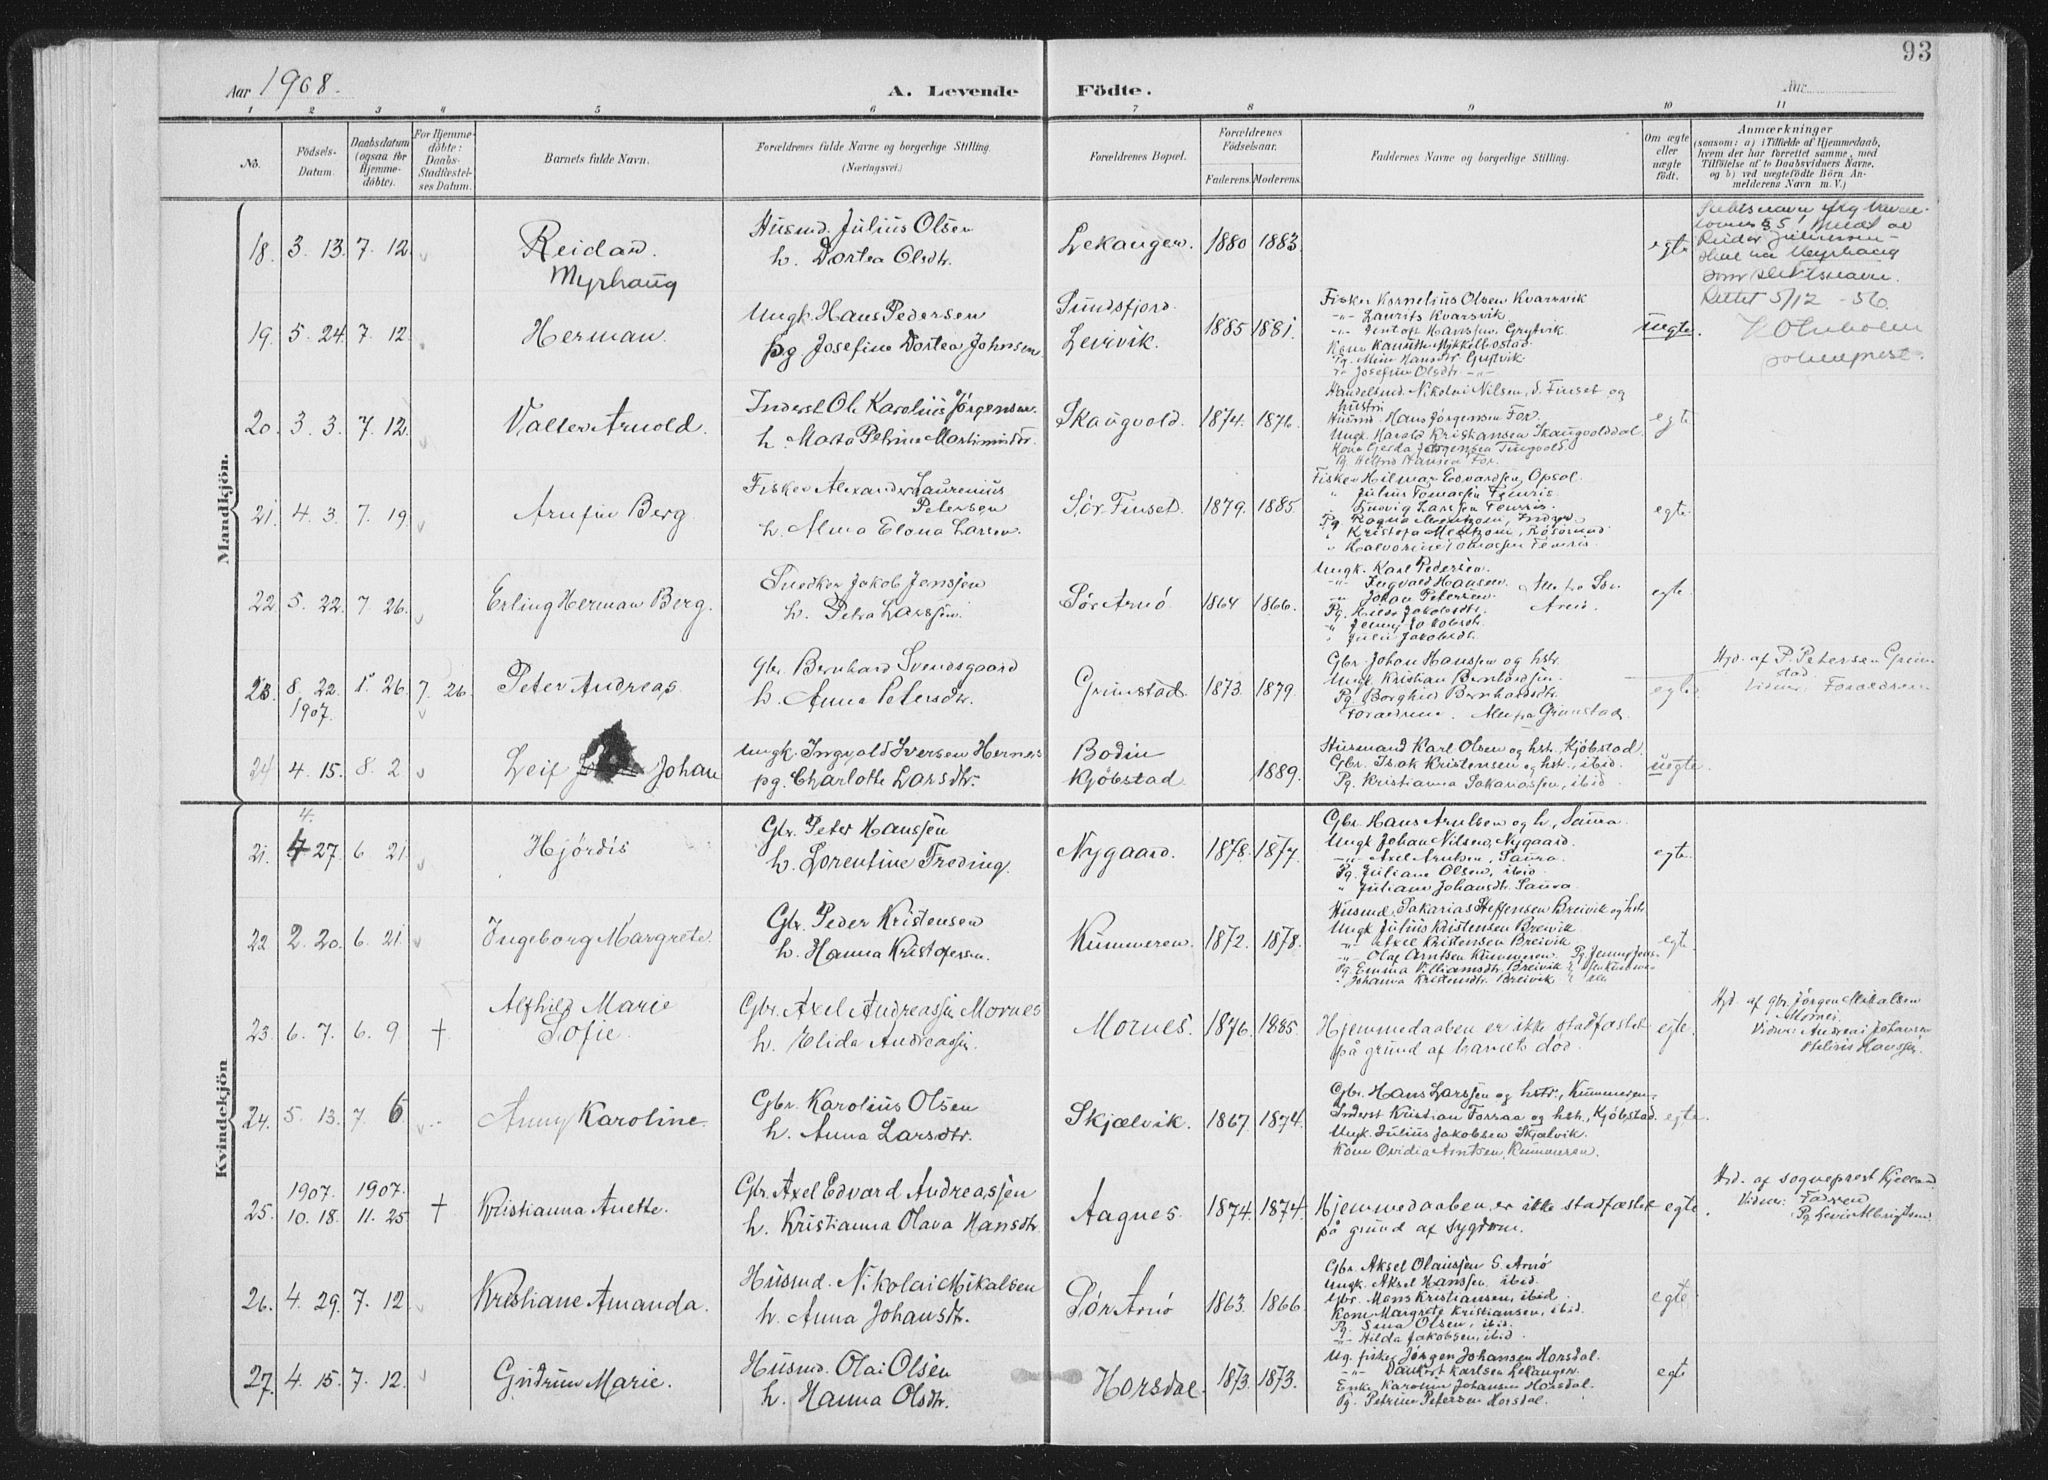 93
Aar 1908.
A. Levende Födte.
Aar
1 2 3 4 5 6 7 8 9 10 11
No.
Födsels-Datum.
Daabsdatum (ogsaa for Hjemmedöbte).
For Hjemmedöbte: Daabs-Stadfæstelses Datum.
Barnets fulde Navn.
Forældrenes fulde Navne og borgerlige Stilling. (Næringsvei.)
Forældrenes Bopæl.
Forældrenes Födselsaar.
Faderens. Moderens.
Faddernes Navne og borgerlige Stilling.
Om ægte eller uægte födt.
Anmærkninger
(saasom: a) i Tilfælde af Hjemmedaab, hvem der har forrettet samme, med Tilföielse af to Daabsvidners Navne, og b) ved uægtefödte Börn Anmelderens Navn m. V.)
Mandkjön.
18. 3. 13. 7. 12. Reidar. Myrhaug
Husmd. Julius Olsen
h. Dortea Olsdtr.
Lekangen. 1880 1883. egte
Myrhaug
som slektsnavn.
Rettet 5/12 - 56
sokneprest.
19. 5. 24. 7. 12. Herman.
Ungk. Hans Pedersen
pg Josefine Dortea Johnsen
Sundsfjord.
Leirvik.
1885 1881. uegte.
Fisker Kornelius Olsen Kvarsvik
-"- Laurits Kvarsvik
-"- Hanssen, Grytvik
Pg. Hansdtr Grytvik
"- Josefine Olsdtr -"-
20. 3. 3. 7. 12. Valter Arnold.
Inderst Ole Karolius Jørgensen.
h. Marta Petrine Martinusdtr.
Skaugvold. 1874. 1876. egte
Handelsmd. Nikolai Nilsen, S. Finset og
hustru
Husmd. Hans Jørgensen For.
Ungk. Harald Kristiansen Skaugvolddal.
Kone Gerda Jørgensen Tingvold.
Pg. Hansen For.
21. 4. 3. 7. 19. Arnfin Berg
Fisker Alexander Laurenius
Petersen
h. Alma Elona Larsen.
Sør. Finset. 1879. 1885 egte.
Fisker Hilmar Edvardsen, Opsal.
" Julius Tomassen Fenris.
" Ludvig Larssen Fenris.
" Halvorine Tomassen Fenris.
22 5. 22. 7. 26. Erling Herman Berg.
Snedker Jakob Jenssen
h. Petra Larssen.
Sør Arnö 1864 1866. egte.
Ungk. Karl Pedersen.
-"- Ingvald Hansen.
-"- Johan Petersen.
Pg. Hilda Jakobsdtr.
-"- Jenny Jakobsdtr.
" Julie Jakobsdtr.
Alle fra Sør
Arnö.
23. 8. 22. 1907. 1. 26. 7. 26. Peter Andreas.
Gbr. Bernhard Svendsgaard
h. Anna Petersdtr.
Grimstad. 1873. 1879. egte
Gbr. Johan Hanssen og hstr.
Ungk. Kristian Bernhardsen.
Pg. Borghild Bernhardsdtr.
Forældrene. Alle fra Grimstad.
Hjd. af P. Petersen Grim
stad
Vidner: Forældrene
24 4. 15. 8. 2. Leif Johan
Ungk. Ingvald Iversen Hernes
pg. Charlotte Larsdtr.
Bodin
Kjøbstad
1889. uegte.
Husmand Karl Olsen og hstr. Kjøbstad.
Gbr. Isak Kristensen og hstr., ibid.
Pg. Kristianna Sakariassen, ibid.
Kvindekjön
21. 4. 27. 6 21. Hjördis
Gbr. Peter Hanssen
h. Lorentine Froding.
Nygaard. 1878. 1877. egte.
Gbr. Hans Arntsen og h, Saura.
Ungk Johan Nilsen, Nygaard.
-"- Axel Arntsen, Saura.
Pg. Juliane Olsen, ibid.
" Juliane Johansdtr. Saura.
22 2. 20. 6. 21. Ingeborg Margrete.
Gbr. Peder Kristensen
h. Hanna Kristofersen.
Kummeren. 1872. 1878. egte.
Husmd. Sakarias Steffensen Breivik og hstr
Ungk Julius Kristensen Breivik.
-"- Axel Kristensen Breivik
-"- Olaf Arntsen Kummeren.
Pg. Emma Villiamsdtr. Breivik
" Johanna Kristensdtr. Breivik
23. 6. 7. 6. 9 + Alfhild Marie
Sofie.
Gbr. Axel Andreassen Mornes
h. Elida Andreassen.
Mornes. 1876. 1885. egte.
Hjemmedaaben er ikke stadfæstet
på grund af barnets död.
Hjd. af gbr. Jørgen Mikalsen
Mornes
Vidner: Andreas Johansen
Hanssen.
24. 5. 13. 7. 6 Anny Karoline.
Gbr. Karolius Olsen
h. Anna Larsdtr.
Skjælvik. 1867. 1874. egte.
Gbr. Hans Larssen og hstr., Kummeren.
Inderst Kristian Forsaa og hstr, Kjøbstad.
Ungk. Julius Jakobsen Skjælvik.
Kone Ovidia Arntsen, Kummeren.
25. 1907. 10. 18. 1907. 11. 25 + Kristianna Anette.
Gbr. Axel Edvard Andreassen
h. Kristianna Olava Hansdtr.
Aagnes. 1874. 1874. egte.
Hjemmedaaben er ikke stadfæstet
på grund af sygdom.
Hjd. af sogneprest Kjelland.
Vidner: Faderen
Pg Levie Albrigtsen.
26. 4. 29. 7. 12 Kristiane Amanda.
Husmd. Nikolai Mikalsen
h. Anna Johansdtr.
Sør Arnö 1863. 1866. egte
Gbr. Aksel Olaussen S. Arnö
Ungk. Aksel Hanssen, ibid.
Gbr. Mons Kristiansen, ibid.
Kone Margrete Kristiansen, ibid.
Pg. Sina Olsen, ibid.
-"- Hilda Jakobsen, ibid.
27. 4. 15. 7. 12. Gudrun Marie.
Husmd. Olai Olsen
h. Hanna Olsdtr.
Horsdal. 1873. 1873. egte
Ug. fisker Jørgen Johansen Horsdal.
-"- Dankert Karlsen Lekangen.
Enke Karoline Johansen Horsdal.
Pg. Petrine Petersen Horsdal.